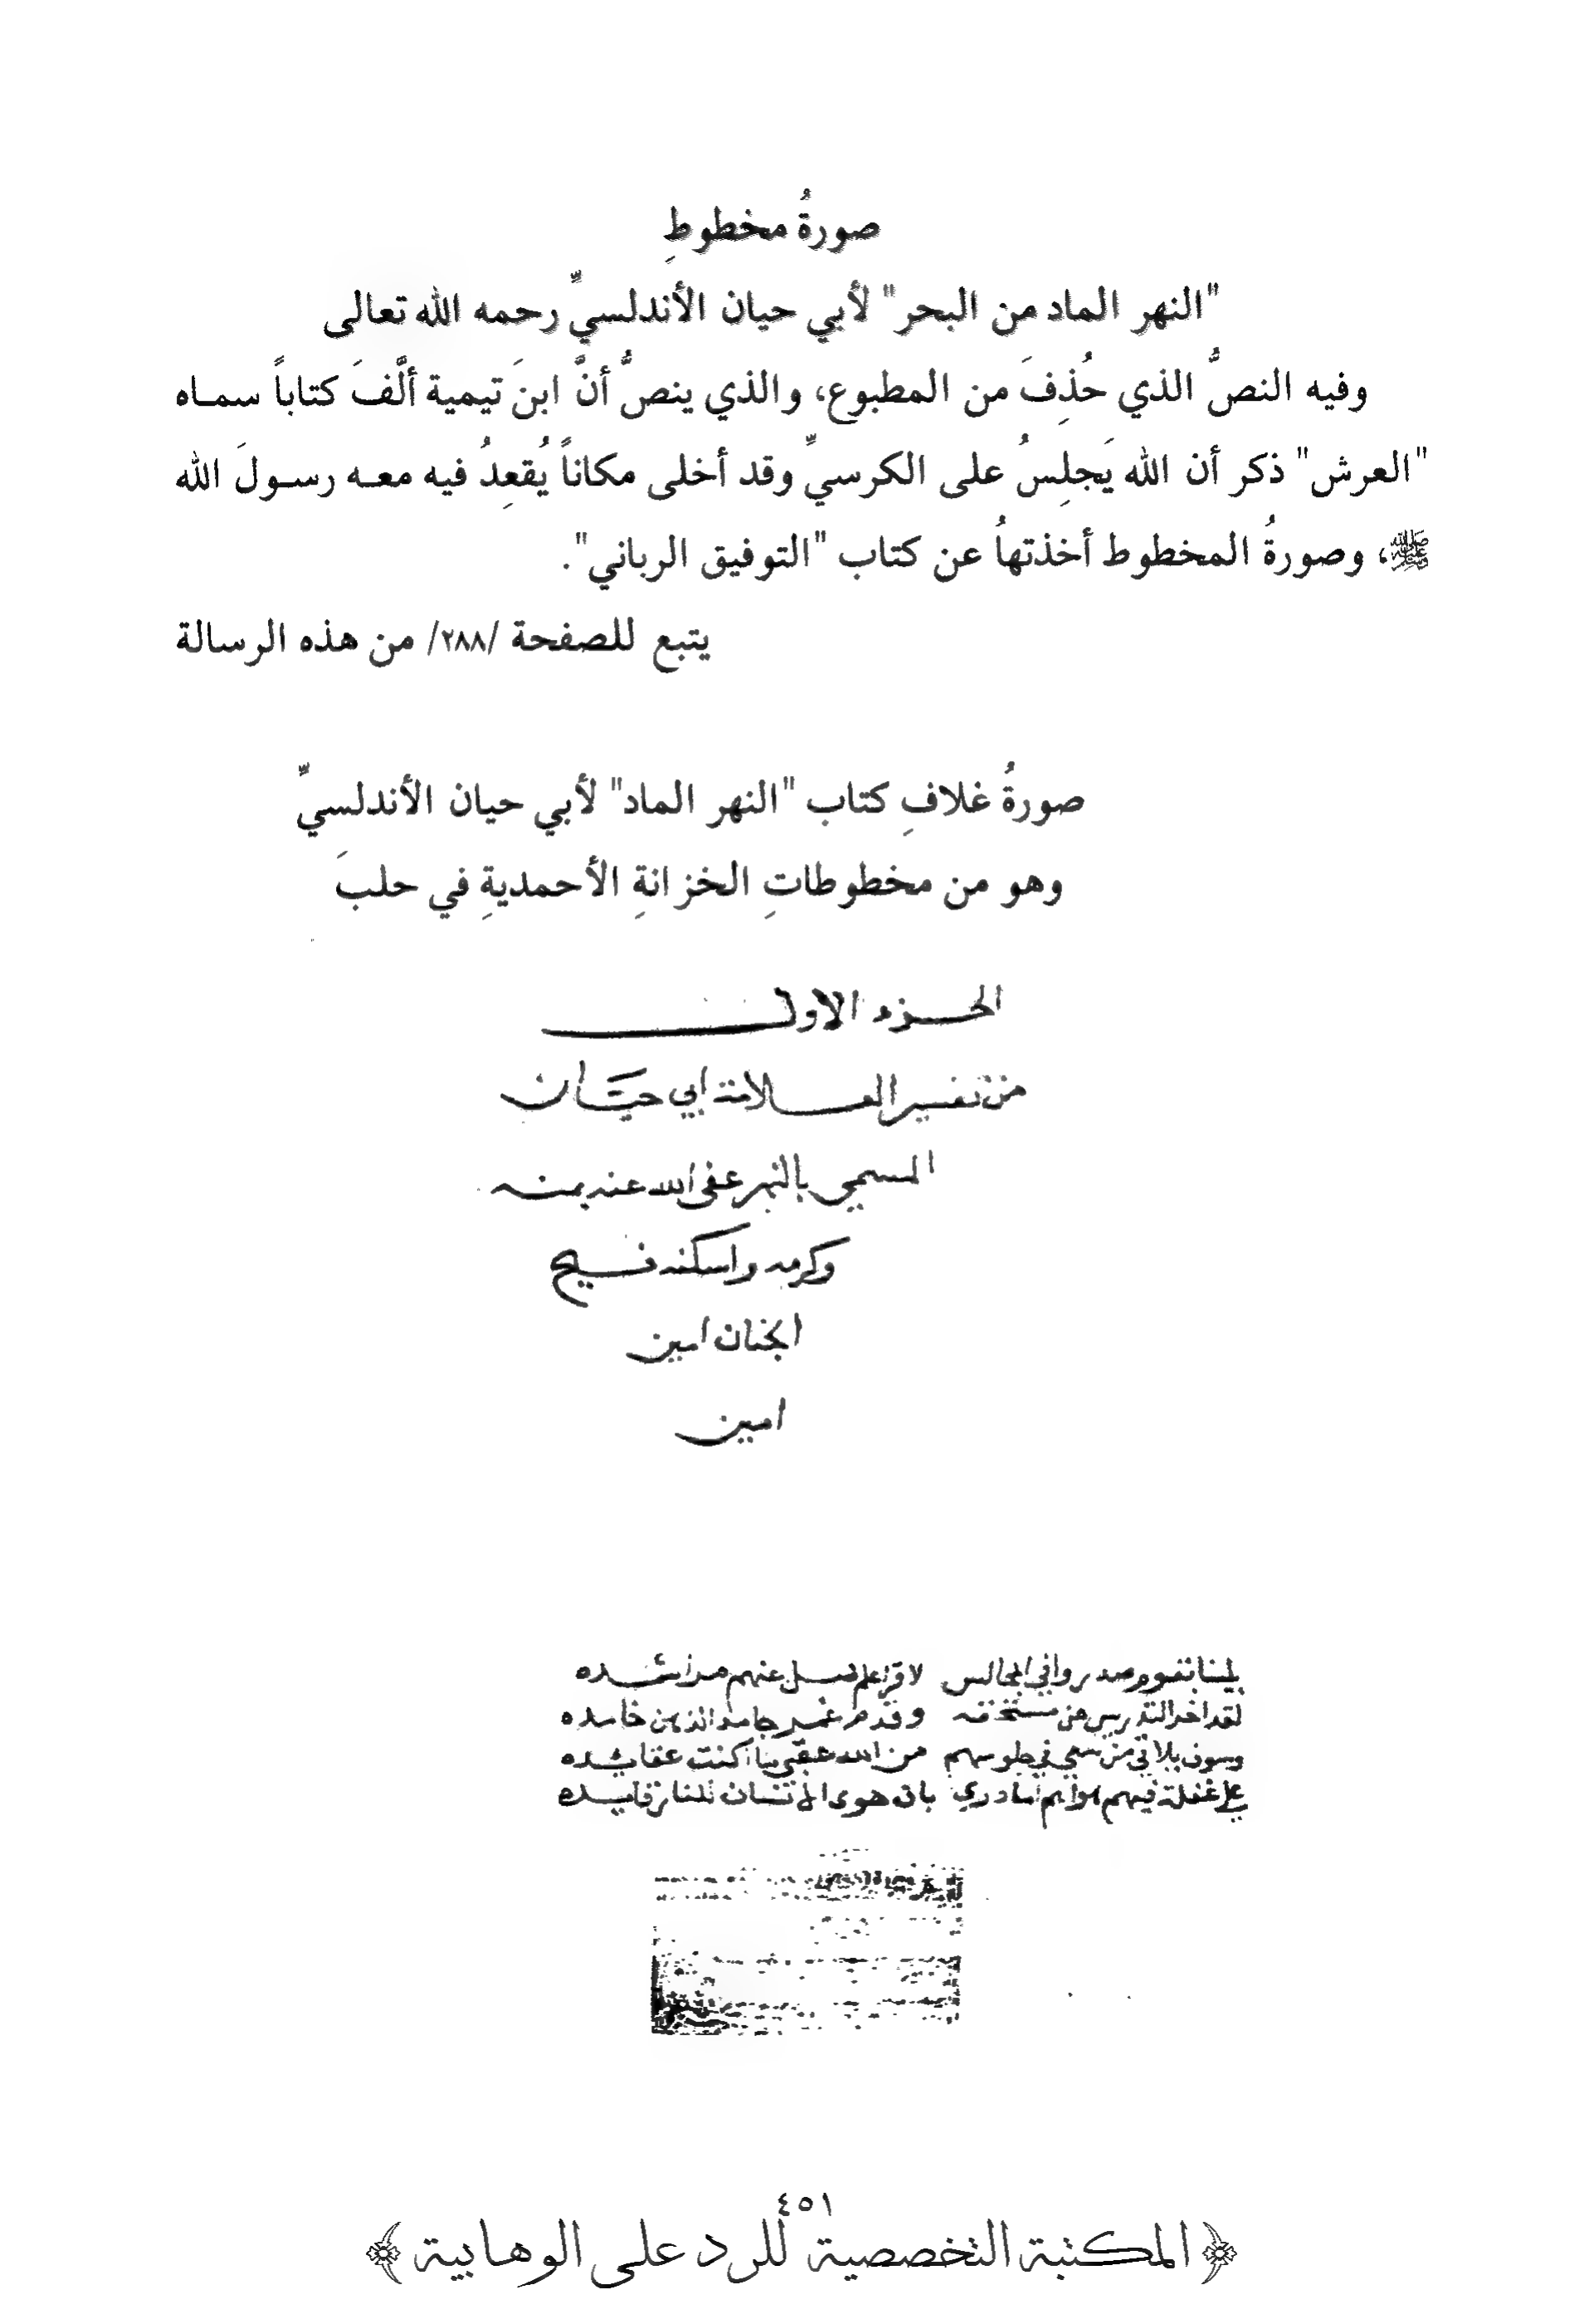 صورةُ مخطوطِ
"النهر الماد من البحر" لأبي حيان الأندلسيِّ رحمه الله تعالى
وفيه النصُّ الذي حُذِفَ من المطبوع، والذي ينصُّ أنَّ ابنَ تيمية ألَّفَ كتاباً سماه
"العرش" ذكر أن الله يَجلِسُ على الكرسيِّ وقد أخلى مكاناً يُقعِدُ فيه معه رسولَ الله
ﷺ، وصورةُ المخطوط أخذتهاُ عن كتاب "التوفيق الرباني".
يتبع للصفحة /٢٨٨/ من هذه الرسالة
صورةُ غلافِ كتاب "النهر الماد" لأبي حيان الأندلسيِّ
وهو من مخطوطاتِ الخزانةِ الأحمديةِ في حلبَ
الجزء الاول
من تفسير العلامة ابي حيّان
المسمى بالنهر عفى الله عنه بمنه
وكرمه واسكنه فسيح
الجنان امين
امين
بلينا بقوم صدروا في المجالس لاقرا علم ضل عنهم مراشده
لقد اخر التدريس عن مستحقه وقدم غمر جامد الذهن خامده
وسوف يلاقي من سعى في جلوسهم من الله عقبى ما اكنت عقائده
على غفلة فيهم هواهم اما درى بان هوى الانسان للنار قايده
٤٥١
﴿ المكتبة التخصصية للرد على الوهابية ﴾